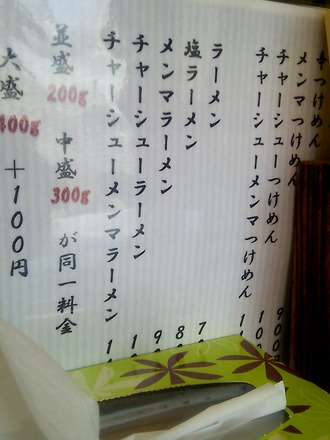 辛つけめん
メンマつけめん 900
チャーシューつけめん 10
チャーシューメンマつけめん 11
ラーメン 7
塩ラーメン
メンマラーメン 8
チャーシューラーメン
チャーシューメンマラーメン 1
並盛200g 中盛300g が同一料金
大盛400g +100円